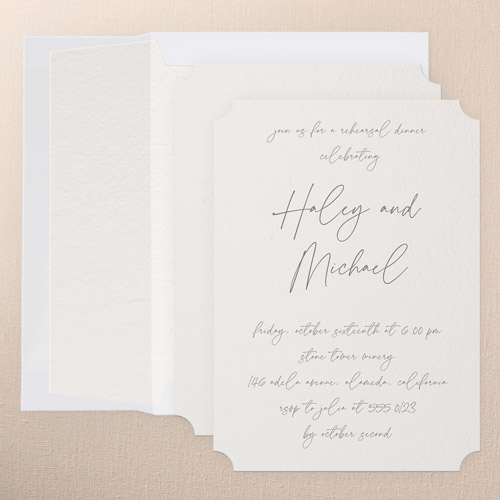 join us for a rehearsal dinner
celebrating
Haley and
Michael
friday, october sixteenth at 6:00 pm
stone tower winery
146 adela avenue, alameda, california
rsvp to julia at 555 0123
by october second